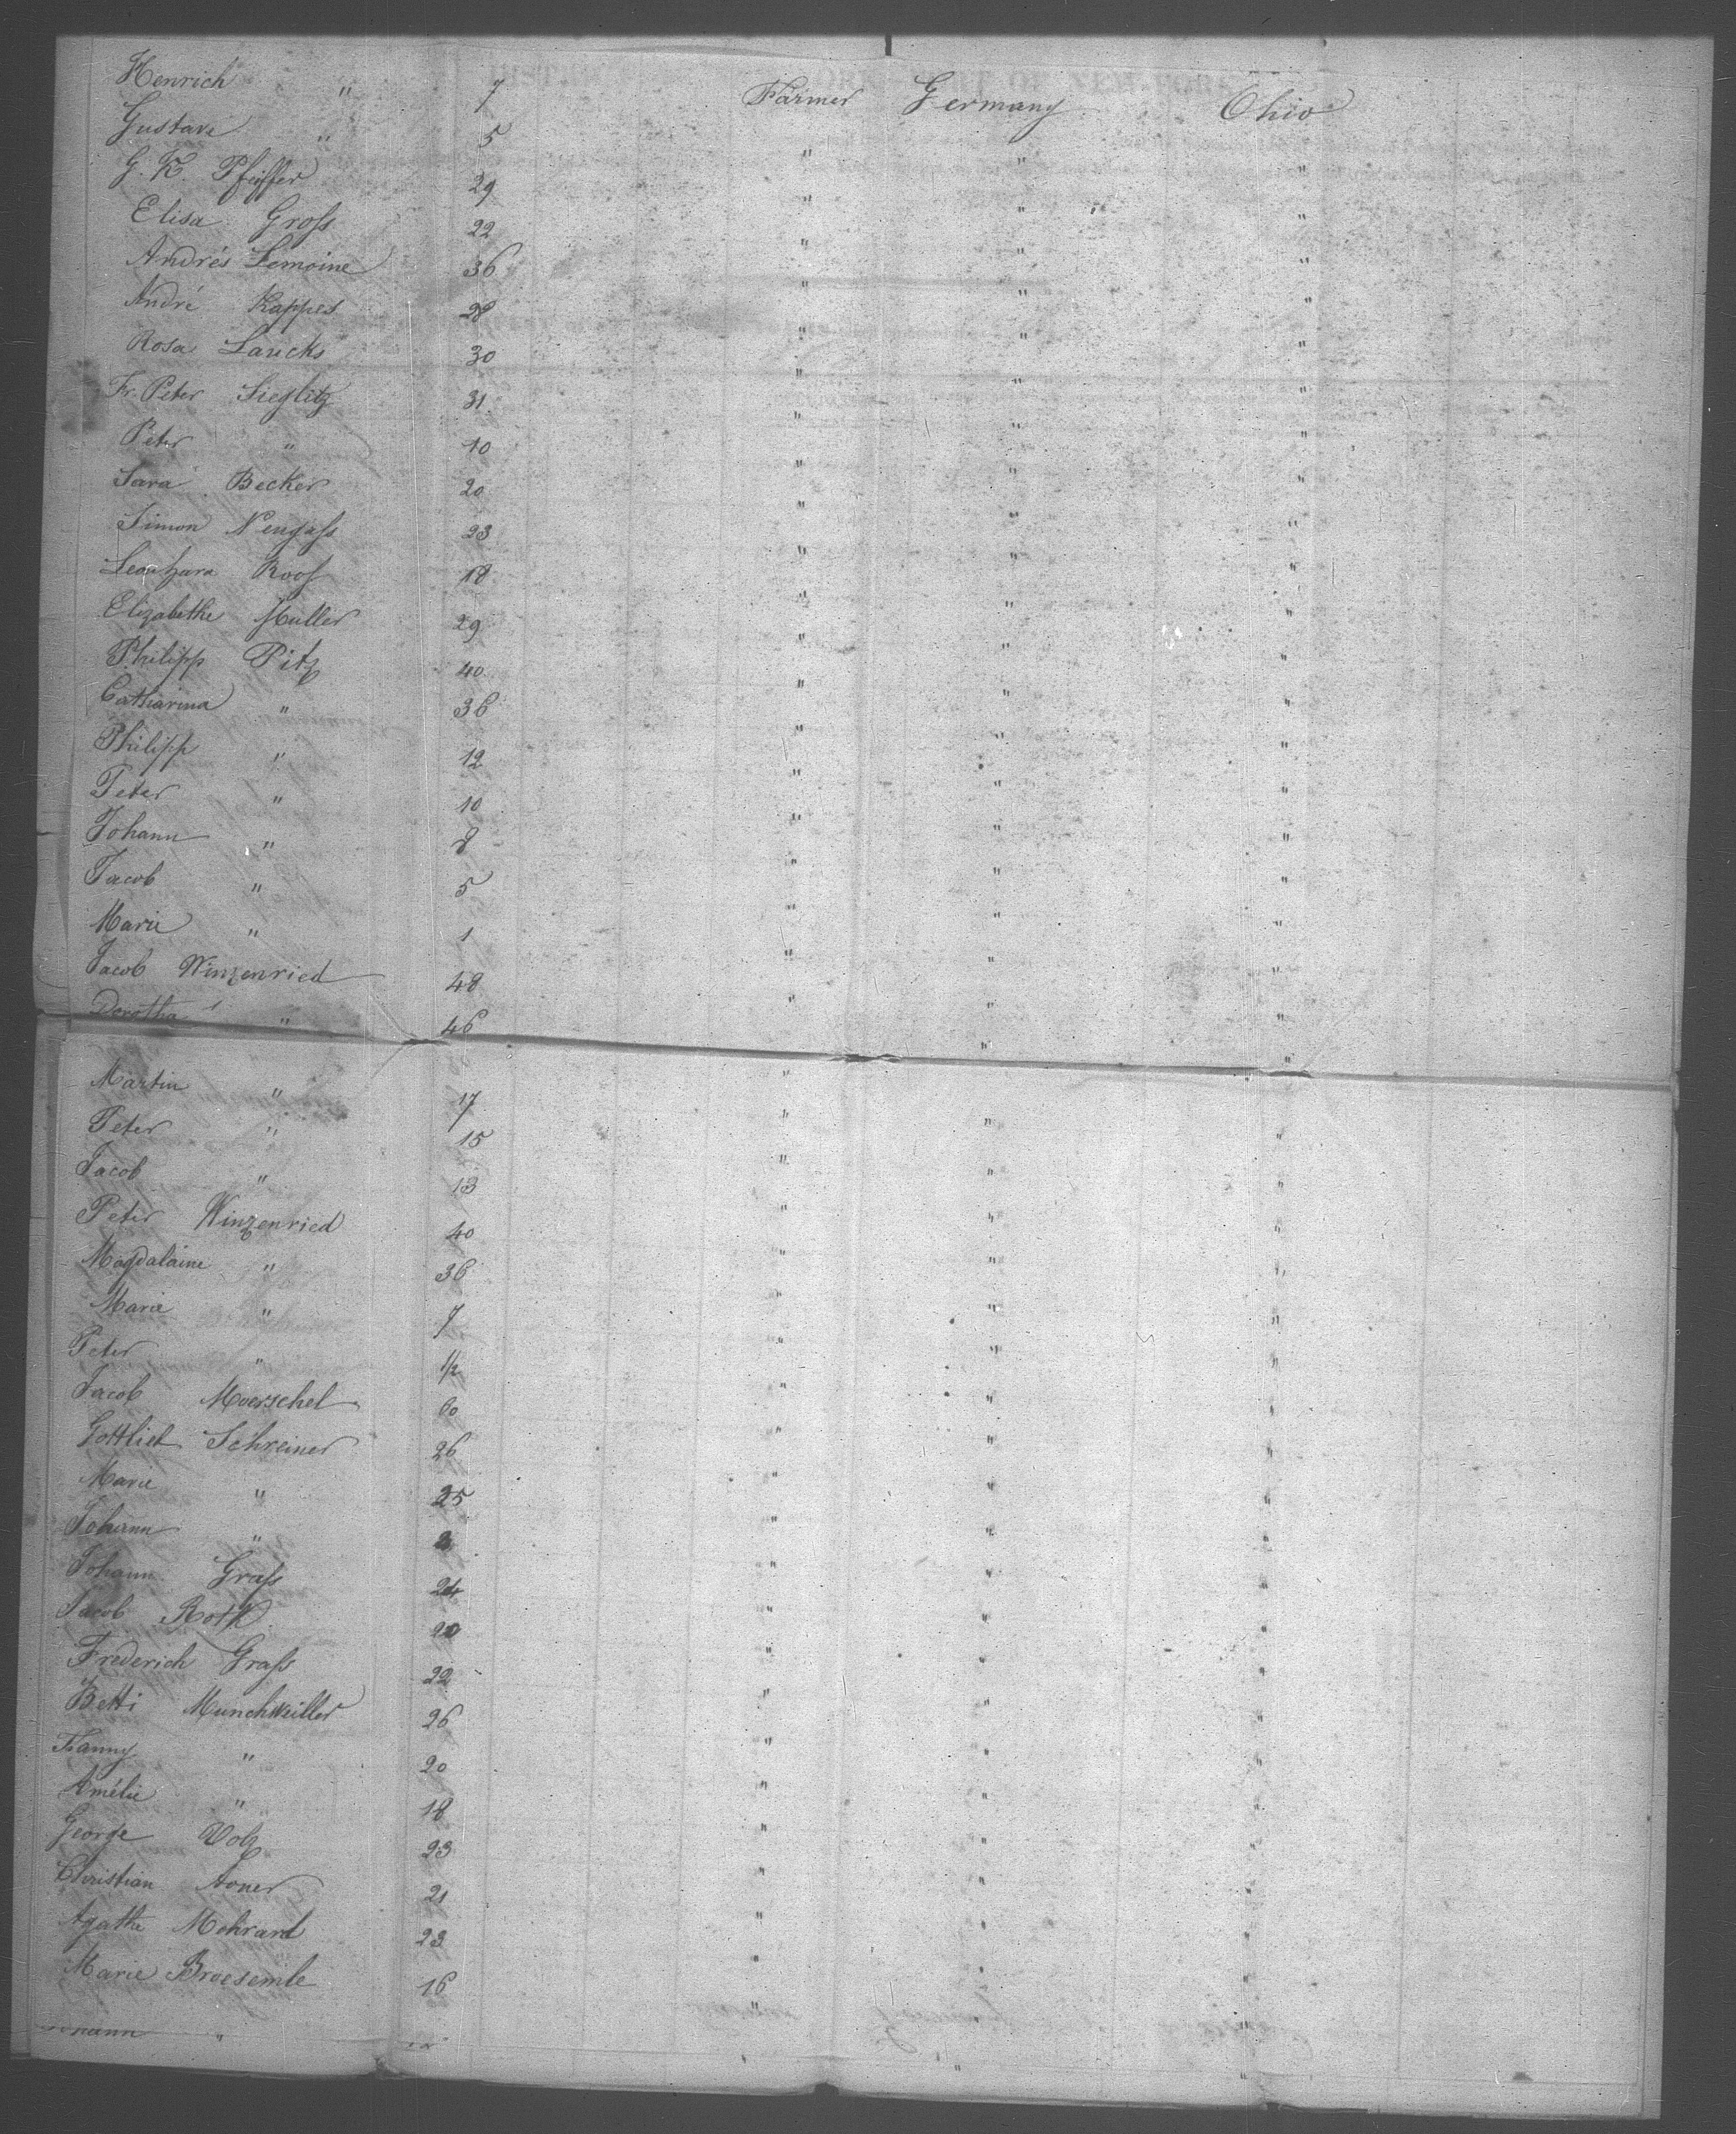 Henrich " 7 Farmer Germany Ohio
Gustave " 5 " " "
G. K. Pfeiffer 29 " " "
Elisa Groſs 22 " " "
Andrés Lemoine 36 " " "
André Kappes 28 " " "
Rosa Laucks 30 " " "
Fr. Peter Sieglitz 31 " " "
Peter " 10 " " "
Sara Becker 20 " " "
Simon Neugaſs 23 " " "
Rooſ 18 " " "
Elizabethe Muller 29 " " "
Philipp Pitz 40 " " "
Catharina " 36 " " "
Philipp " 12 " " "
Peter " 10 " " "
Johann " 8 " " "
Jacob " 5 " " "
Marie " 1 " " "
Jacob Winzenried 48 " " "
Dorotha " 46 " " "
Martin " 17 " " "
Peter " 15 " " "
Jacob " 13 " " "
Peter Winzenried 40 " " "
Magdalaine " 36 " " "
Marie " 7 " " "
Peter " 1/2 " " "
Jacob Moerschel 60 " " "
Gottlieb Schreiner 26 " " "
Marie " 25 " " "
Johann " 2 " " "
Johann Graſs 24 " " "
Jacob Roth 20 " " "
Frederich Graſs 22 " " "
Betti Munchweiller 26 " " "
Fanny " 20 " " "
Amélie " 18 " " "
George Volz 23 " " "
Christian Aoner 21 " " "
Agathe Mohrard 23 " " "
Marie Broesemle 16 " " "
"